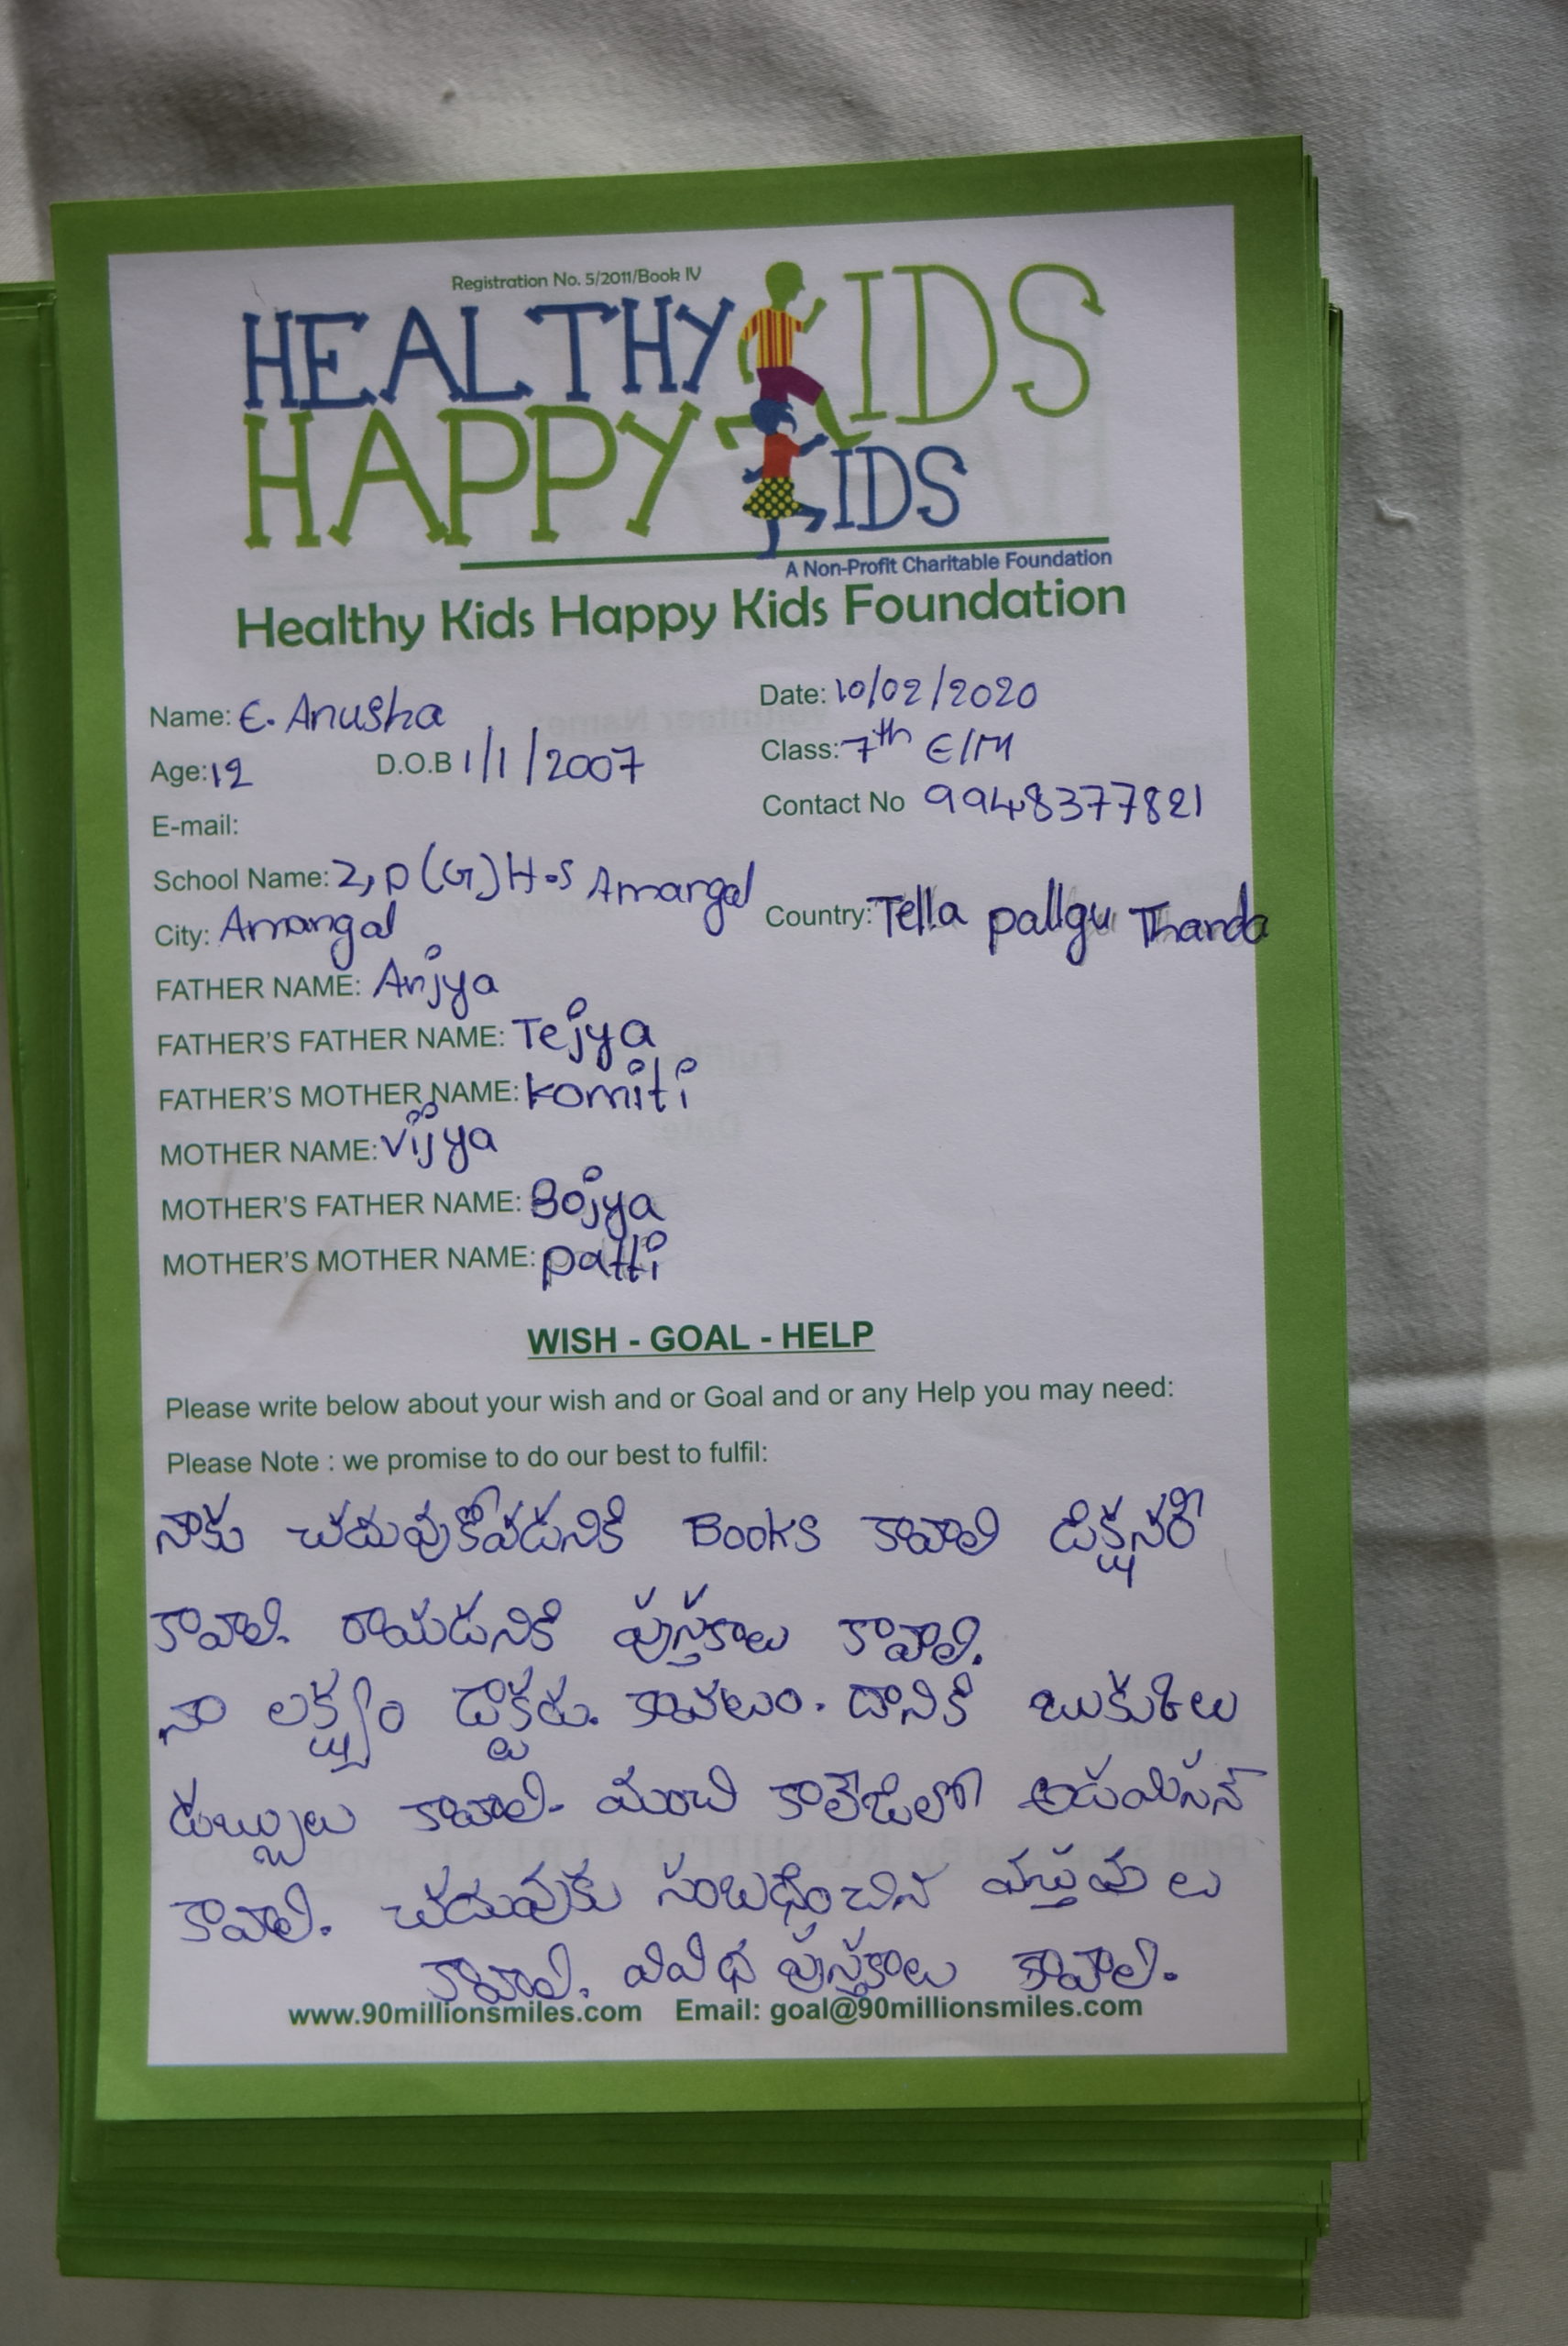 Registration No. 5/2011/Book IV
HEALTHY KIDS
HAPPY KIDS
A Non-Profit Charitable Foundation
Healthy Kids Happy Kids Foundation
Name: E. Anusha Date: 10/02/2020
Age: 12 D.O.B 1/1/2007 Class: 7th E/M
E-mail: Contact No 9948377821
School Name: 2,P(G)H.S Amangal
City: Amangal Country: Tella pallgu Thanda
FATHER NAME: Anjya
FATHER'S FATHER NAME: Tejya
FATHER'S MOTHER NAME: komiti
MOTHER NAME: vijya
MOTHER'S FATHER NAME: Bojya
MOTHER'S MOTHER NAME: patti
WISH - GOAL - HELP
Please write below about your wish and or Goal and or any Help you may need:
Please Note : we promise to do our best to fulfil:
నాకు చదువుకోవడనికి Books కావాలి డిక్షనరీ
కావాలి. రాయడనికి పుస్తకాలు కావాలి.
నా లక్ష్యం డాక్టరు. కావటం. దానికి బుకుకులు
డబ్బులు కావాలి. మంచి కాలేజిలో అడమిసన్
కావాలి. చదువుకు సంబధించిన వస్తువులు
కావాలి. వివిధ పుస్తకాలు కావాలి.
www.90millionsmiles.com Email: goal@90millionsmiles.com